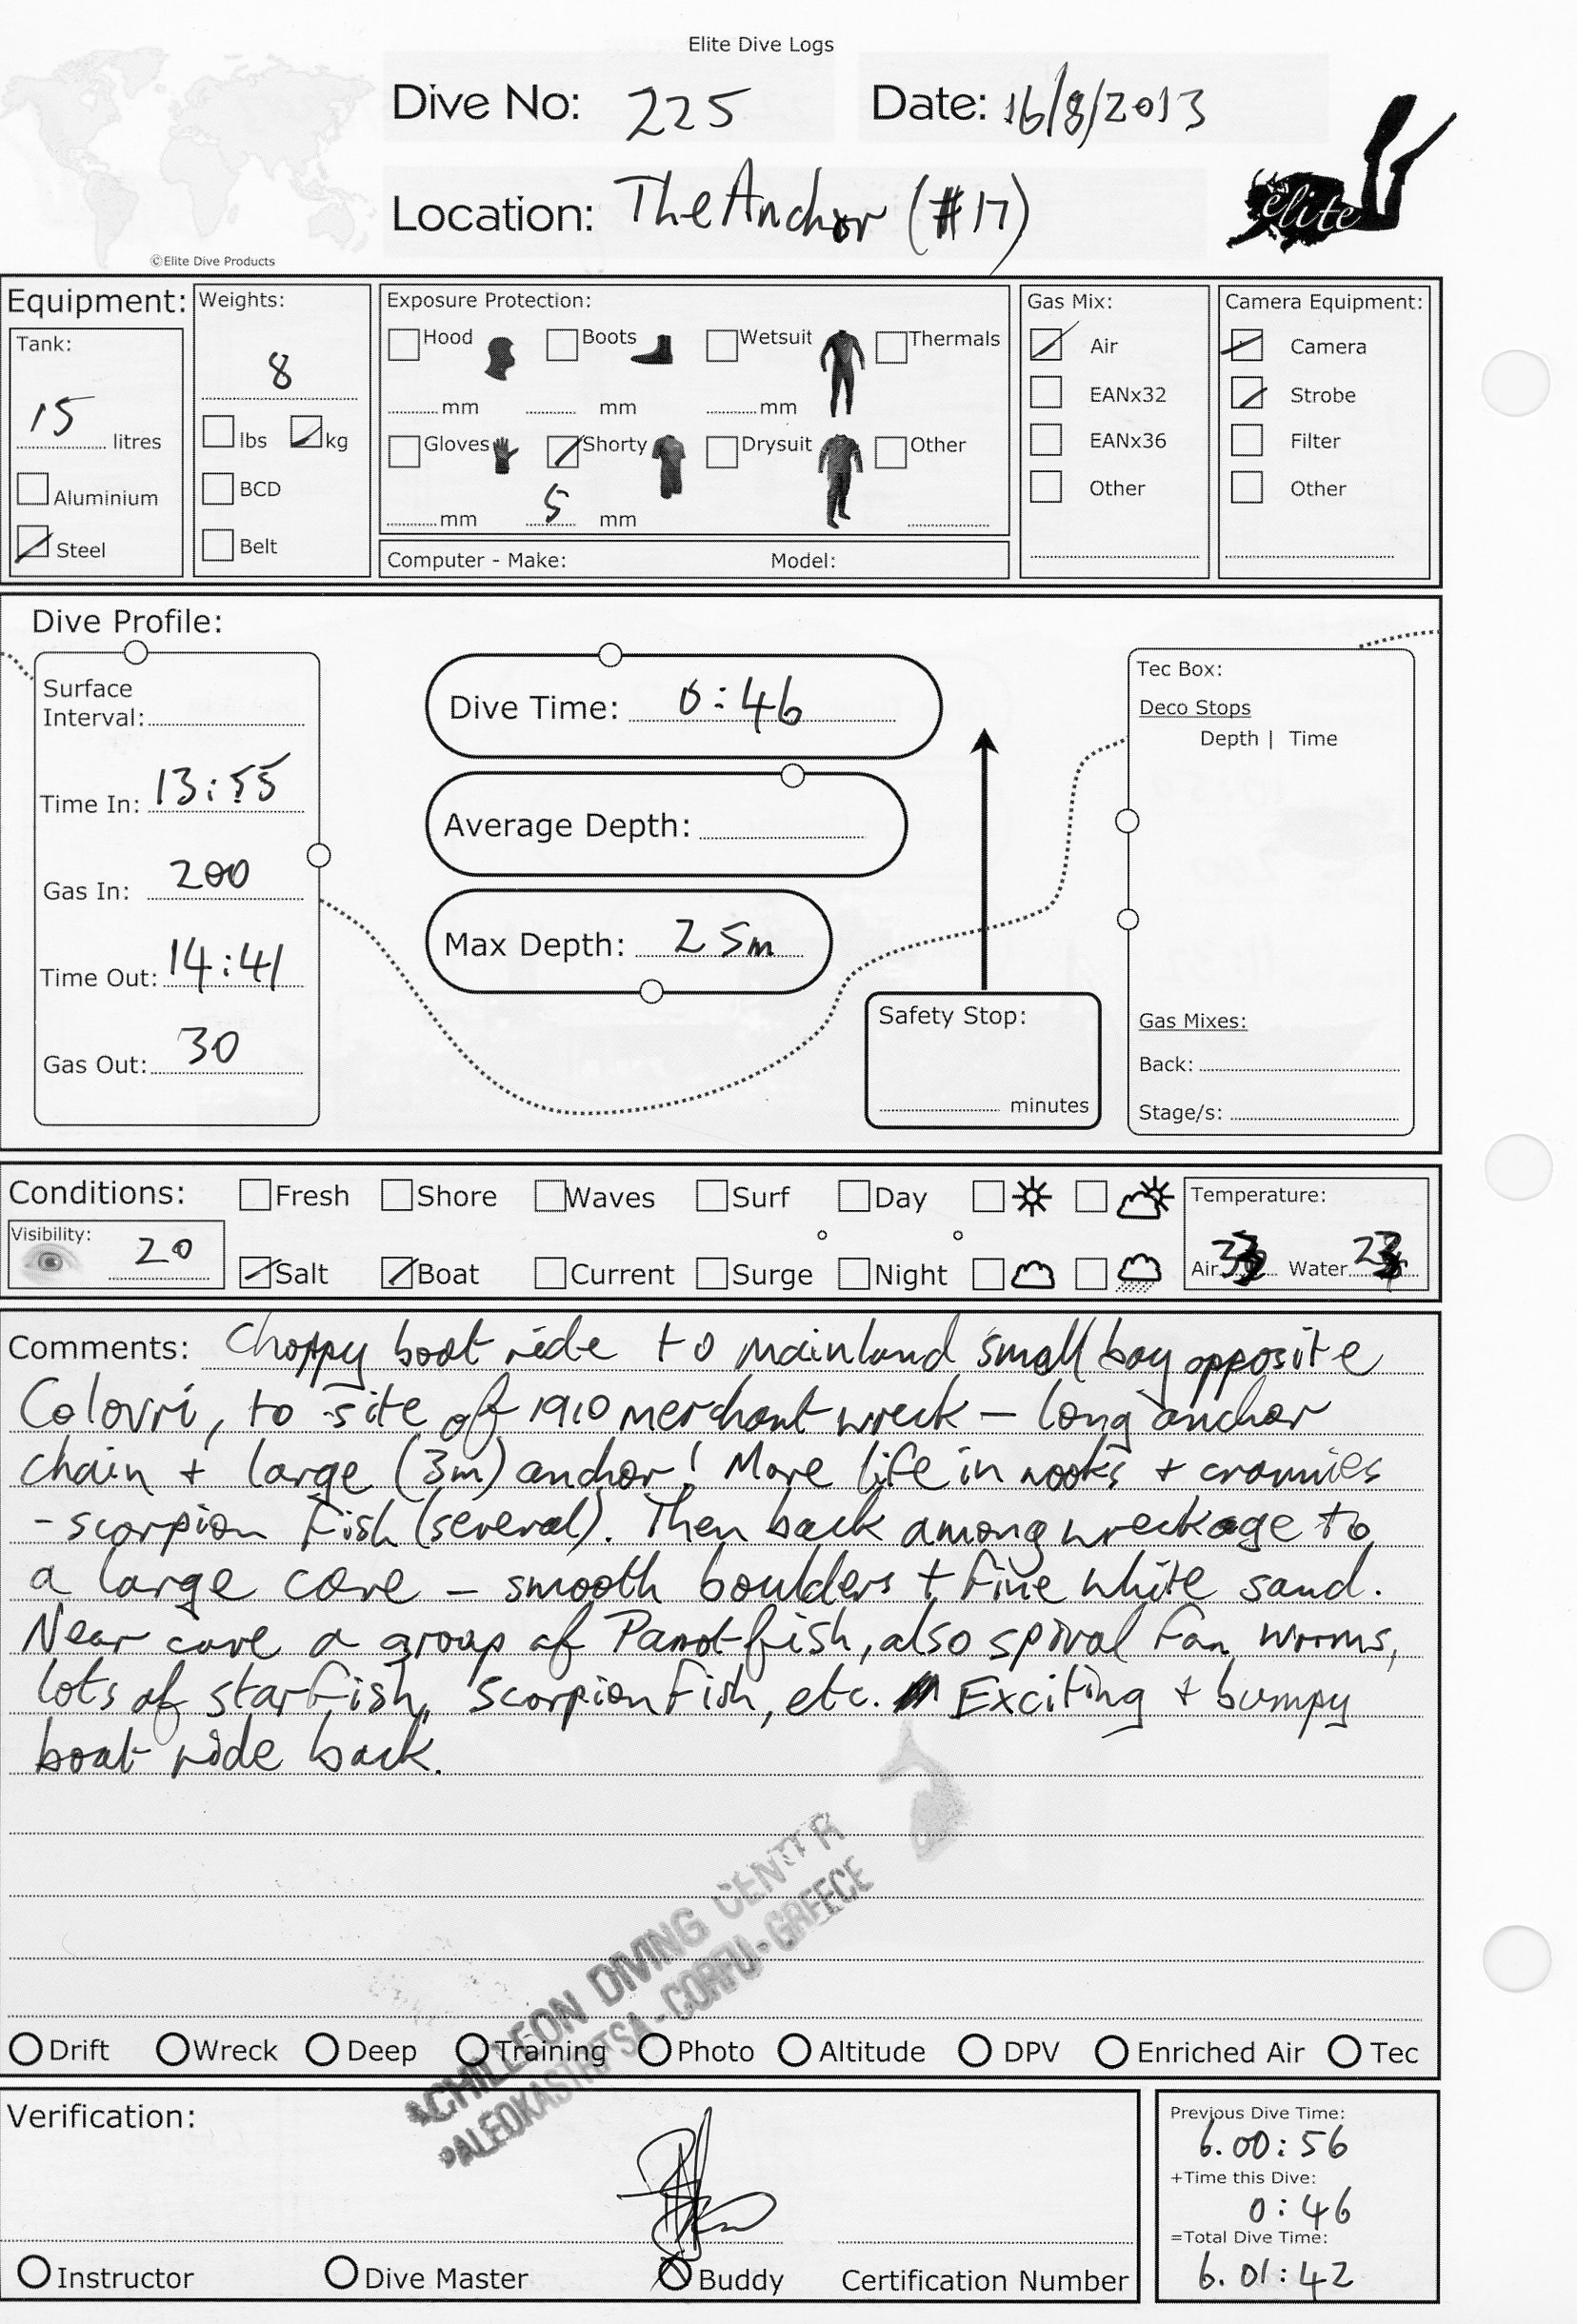 Elite Dive Logs
Dive No: 225 Date: 16/8/2013
Location: The Anchor (#17)
elite
©Elite Dive Products
Equipment:
Tank:
15 litres
Aluminium
Steel
Weights:
8
lbs kg
BCD
Belt
Exposure Protection:
Hood Boots Wetsuit Thermals
mm mm mm
Gloves Shorty Drysuit Other
mm 5 mm
Computer - Make: Model:
Gas Mix:
Air
EANx32
EANx36
Other
Camera Equipment:
Camera
Strobe
Filter
Other
Dive Profile:
Surface
Interval:
Time In: 13:55
Gas In: 200
Time Out: 14:41
Gas Out: 30
Dive Time: 0:46
Average Depth:
Max Depth: 25m
Safety Stop:
minutes
Tec Box:
Deco Stops
Depth | Time
Gas Mixes:
Back:
Stage/s:
Conditions:
Visibility: 20
Fresh Shore Waves Surf Day
Salt Boat Current Surge Night
Temperature:
Air Water
Comments: Choppy boat ride to mainland small bay opposite
Colovri, to site of 1910 merchant wreck – long anchor
chain + large (3m) anchor! More life in nooks + crannies
- scorpion fish (several). Then back among wreckage to
a large cave – smooth boulders + fine white sand.
Near cave a group of Parrotfish, also spiral fan worms,
lots of starfish, scorpion fish, etc. Exciting + bumpy
boat ride back.
ACHILLEON DIVING CENTER
PALEOKASTRITSA - CORFU - GREECE
Drift Wreck Deep Training Photo Altitude DPV Enriched Air Tec
Verification:
Instructor Dive Master Buddy Certification Number
Previous Dive Time:
6.00:56
+Time this Dive:
0:46
=Total Dive Time:
6.01:42